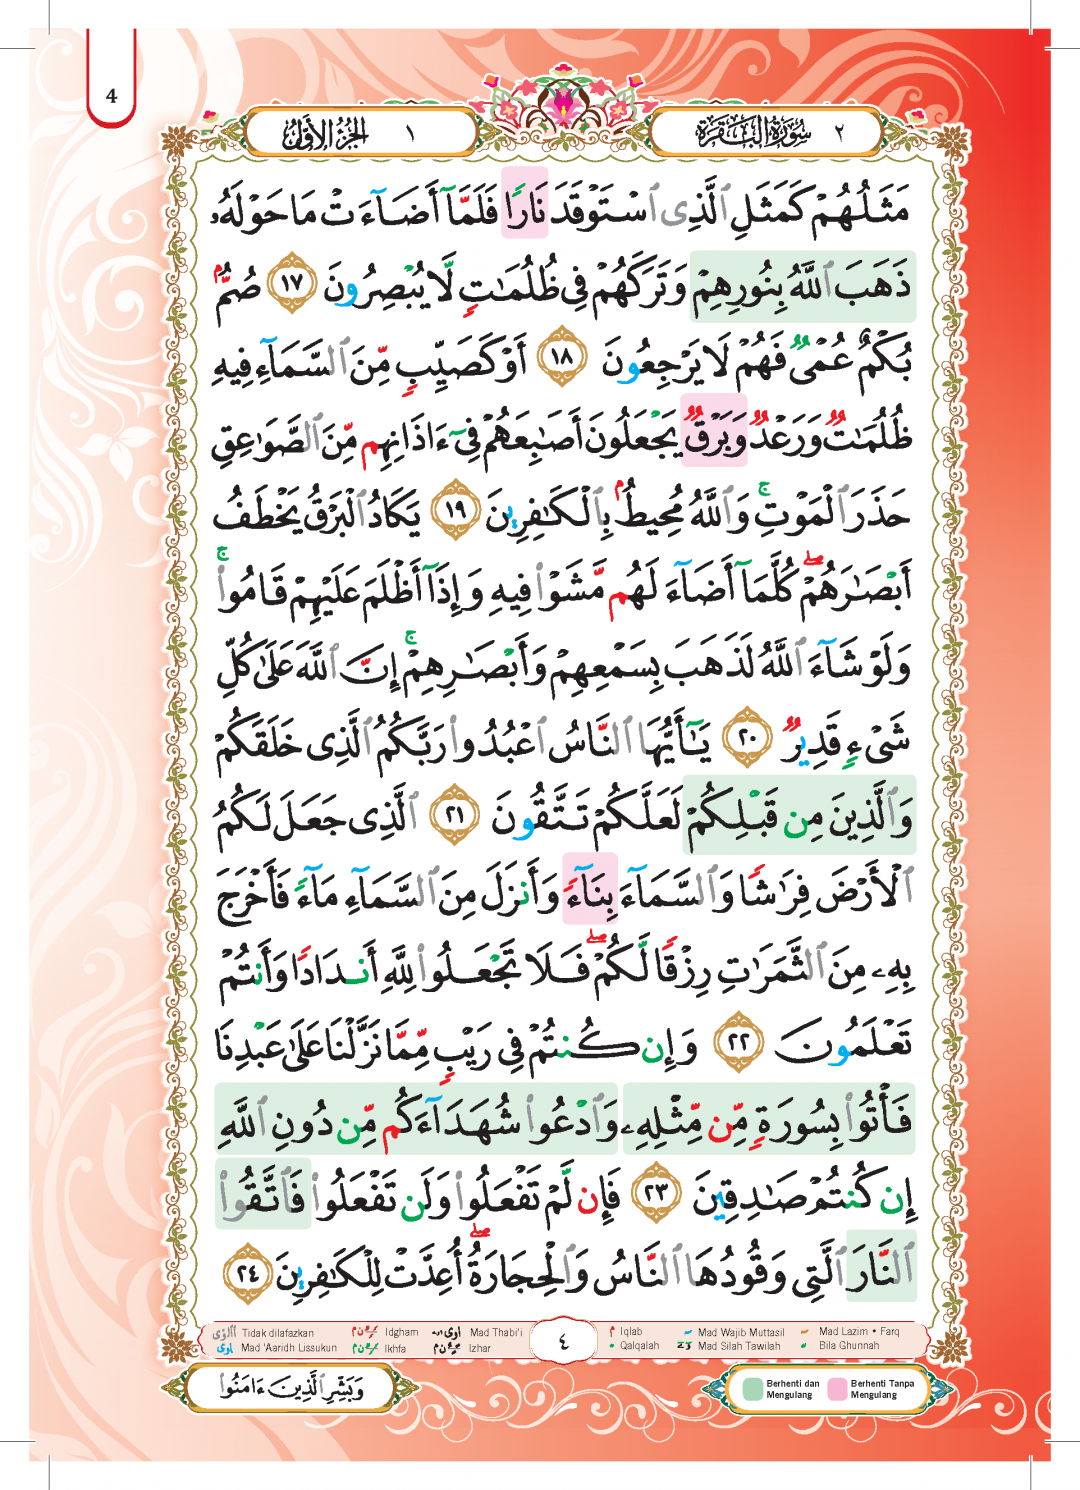 4
سُورَةُ الْبَقَرَة ٢
١ الجُزْءُ الأَوَّلُ
مَثَلُهُمْ كَمَثَلِ ٱلَّذِى ٱسْتَوْقَدَ نَارًا فَلَمَّآ أَضَآءَتْ مَا حَوْلَهُۥ
ذَهَبَ ٱللَّهُ بِنُورِهِمْ وَتَرَكَهُمْ فِى ظُلُمَـٰتٍ لَّا يُبْصِرُونَ ١٧ صُمٌّۢ
بُكْمٌ عُمْىٌ فَهُمْ لَا يَرْجِعُونَ ١٨ أَوْ كَصَيِّبٍ مِّنَ ٱلسَّمَآءِ فِيهِ
ظُلُمَـٰتٌ وَرَعْدٌ وَبَرْقٌ يَجْعَلُونَ أَصَـٰبِعَهُمْ فِىٓ ءَاذَانِهِم مِّنَ ٱلصَّوَٰعِقِ
حَذَرَ ٱلْمَوْتِ ۚ وَٱللَّهُ مُحِيطٌۢ بِٱلْكَـٰفِرِينَ ١٩ يَكَادُ ٱلْبَرْقُ يَخْطَفُ
أَبْصَـٰرَهُمْ ۖ كُلَّمَآ أَضَآءَ لَهُم مَّشَوْا۟ فِيهِ وَإِذَآ أَظْلَمَ عَلَيْهِمْ قَامُوا۟ ۚ
وَلَوْ شَآءَ ٱللَّهُ لَذَهَبَ بِسَمْعِهِمْ وَأَبْصَـٰرِهِمْ ۚ إِنَّ ٱللَّهَ عَلَىٰ كُلِّ
شَىْءٍ قَدِيرٌ ٢٠ يَـٰٓأَيُّهَا ٱلنَّاسُ ٱعْبُدُوا۟ رَبَّكُمُ ٱلَّذِى خَلَقَكُمْ
وَٱلَّذِينَ مِن قَبْلِكُمْ لَعَلَّكُمْ تَتَّقُونَ ٢١ ٱلَّذِى جَعَلَ لَكُمُ
ٱلْأَرْضَ فِرَٰشًا وَٱلسَّمَآءَ بِنَآءً وَأَنزَلَ مِنَ ٱلسَّمَآءِ مَآءً فَأَخْرَجَ
بِهِۦ مِنَ ٱلثَّمَرَٰتِ رِزْقًا لَّكُمْ ۖ فَلَا تَجْعَلُوا۟ لِلَّهِ أَندَادًا وَأَنتُمْ
تَعْلَمُونَ ٢٢ وَإِن كُنتُمْ فِى رَيْبٍ مِّمَّا نَزَّلْنَا عَلَىٰ عَبْدِنَا
فَأْتُوا۟ بِسُورَةٍ مِّن مِّثْلِهِۦ وَٱدْعُوا۟ شُهَدَآءَكُم مِّن دُونِ ٱللَّهِ
إِن كُنتُمْ صَـٰدِقِينَ ٢٣ فَإِن لَّمْ تَفْعَلُوا۟ وَلَن تَفْعَلُوا۟ فَٱتَّقُوا۟
ٱلنَّارَ ٱلَّتِى وَقُودُهَا ٱلنَّاسُ وَٱلْحِجَارَةُ ۖ أُعِدَّتْ لِلْكَـٰفِرِينَ ٢٤
Tidak dilafazkan Idgham Mad Thabi'i ٤ Iqlab Mad Wajib Muttasil Mad Lazim • Farq
Mad 'Aaridh Lissukun Ikhfa Izhar Qalqalah Mad Silah Tawilah Bila Ghunnah
وَبَشِّرِ ٱلَّذِينَ ءَامَنُوا۟
Berhenti dan Mengulang
Berhenti Tanpa Mengulang